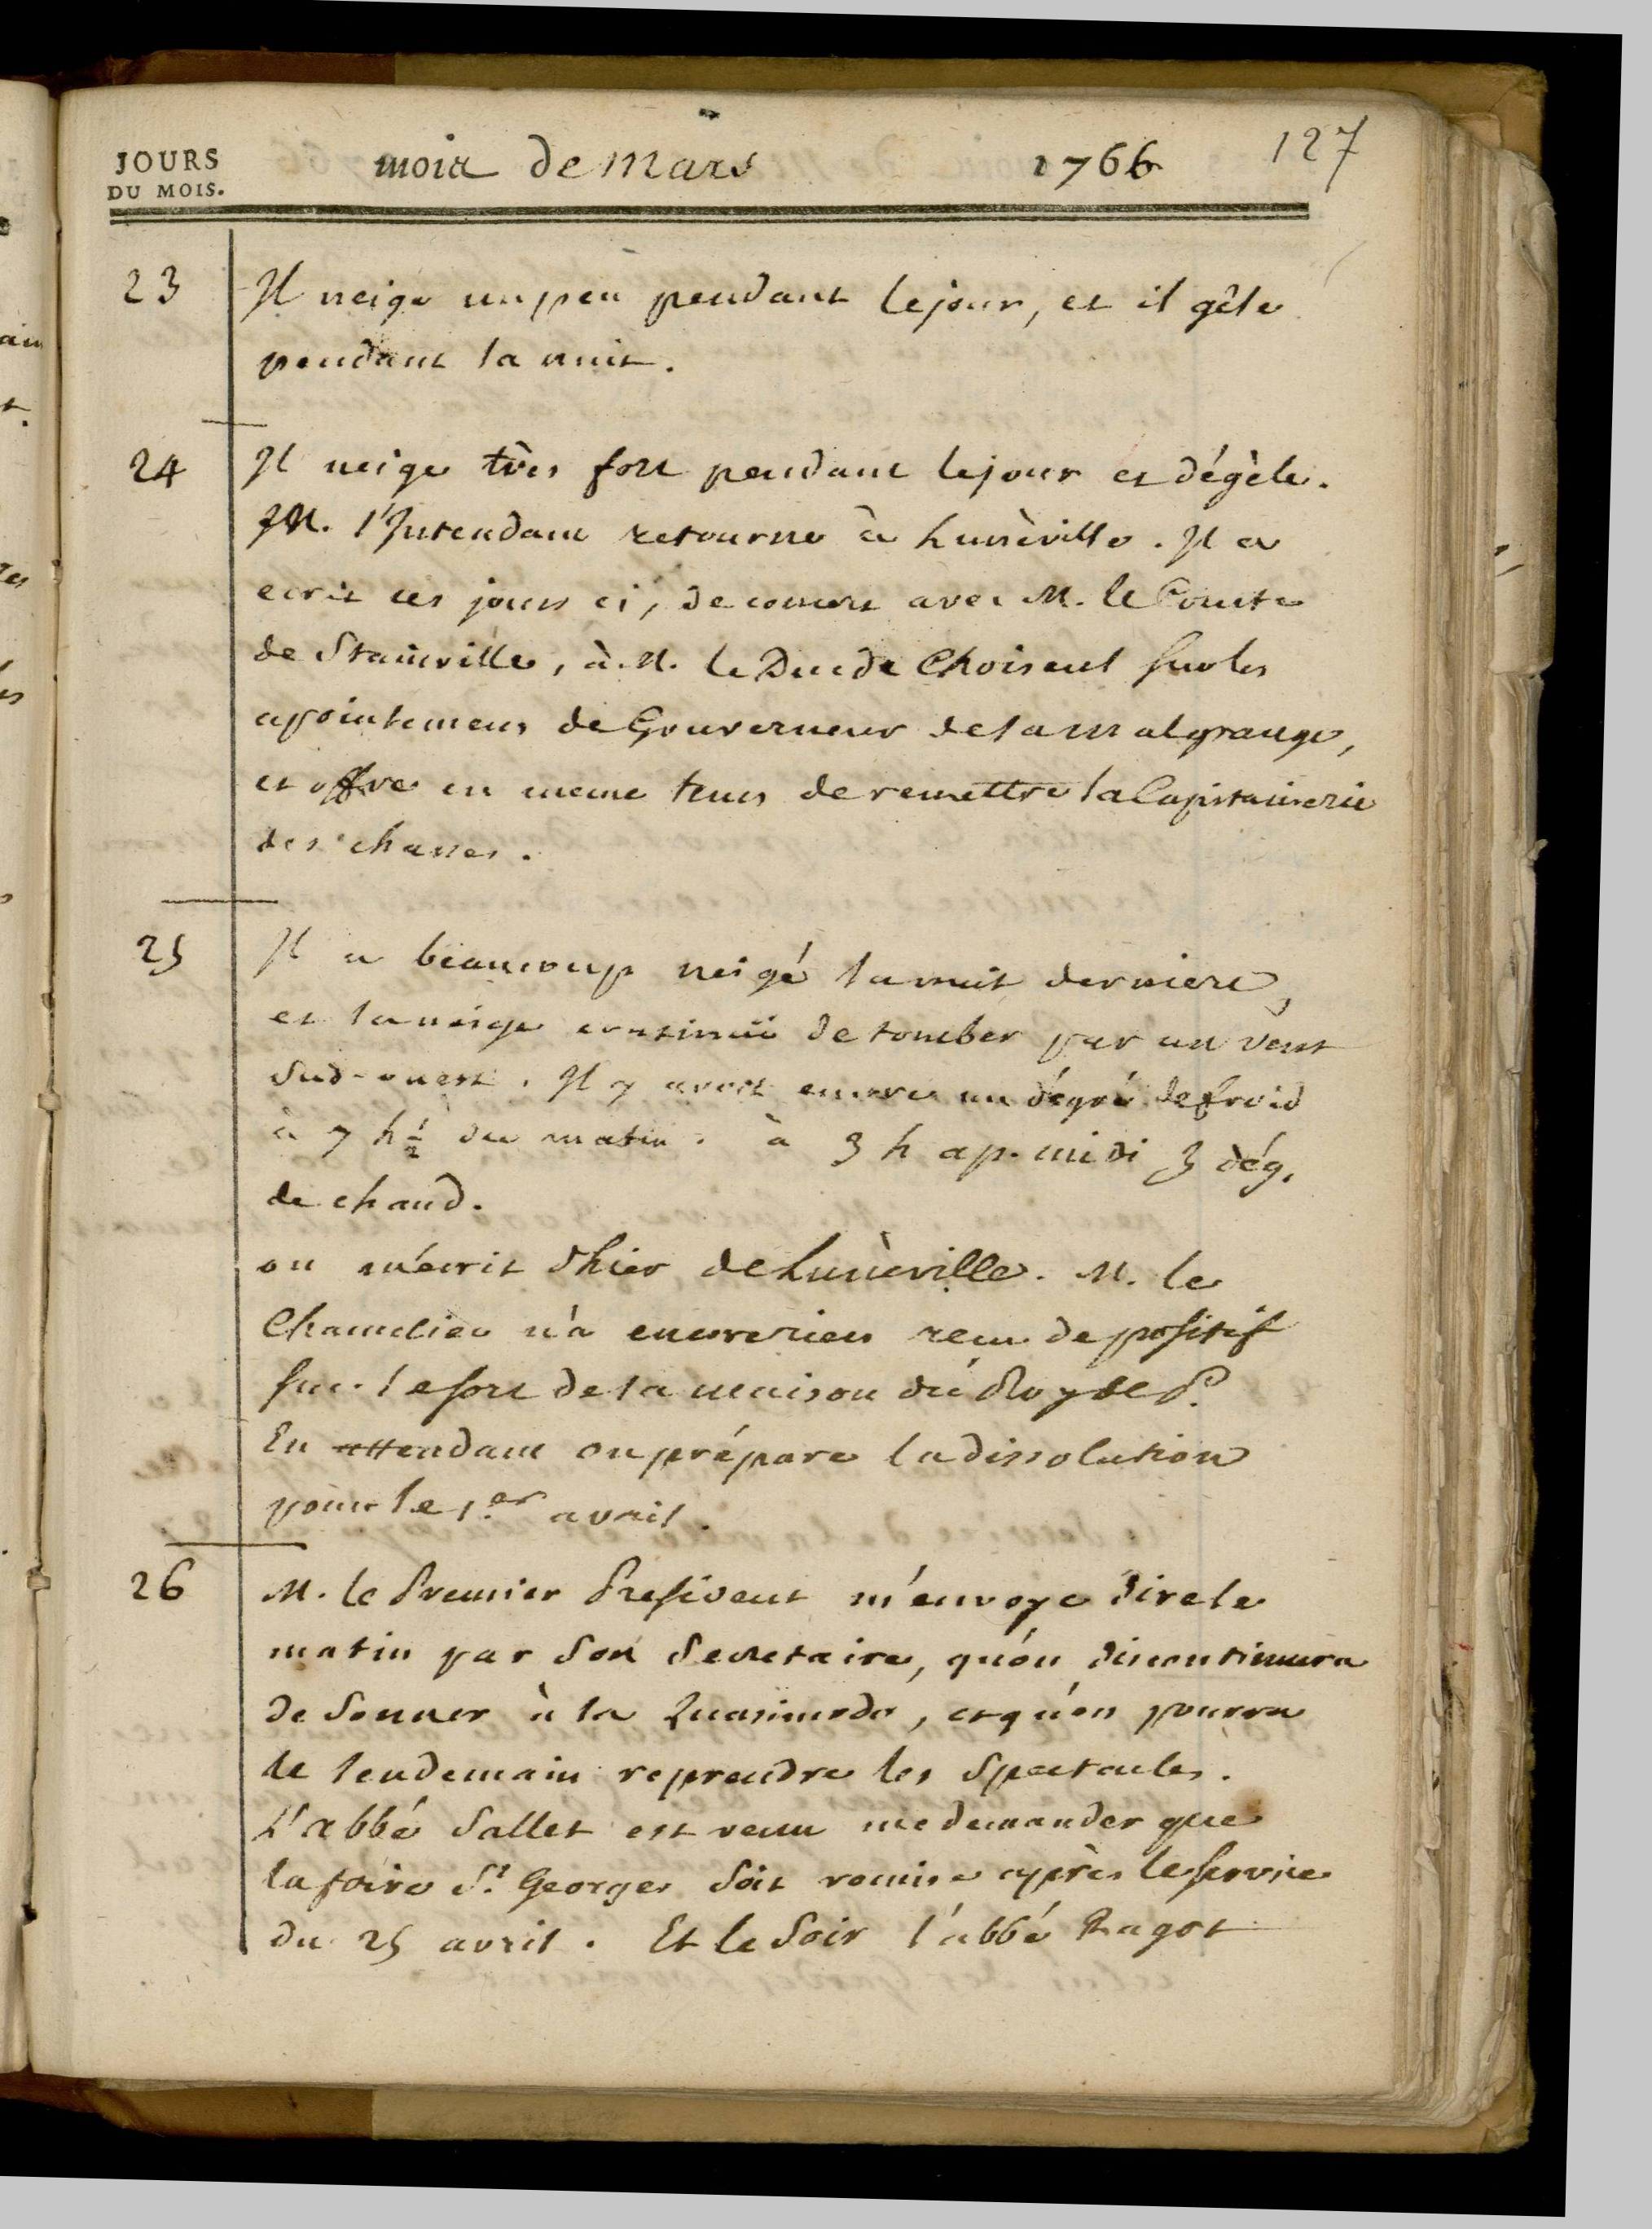 JOURS
DU MOIS.
mois de Mars 1766 127
23 Il neige un peu pendant le jour, et il gèle
pendant la nuit.
24 Il neige très fort pendant le jour et dégèle.
M. l'Intendant retourne à Lunèville. Il a
ecrit ces jours ci, de concert avec M. le Comte
de Stainville, à M. le Duc de Choiseul sur les
apointemens de Gouverneur de la Malgrange,
et offre en meme tems de remettre la Capitainerie
des chasses.
25 Il a beaucoup neigé la nuit derniere,
et la neige continüe de tomber par un vent
Sud-ouest. Il y avoit encore un dégré de froid
à 7 h ½ du matin. à 3 h ap. midi 3 dég.
de chaud.
on m'écrit d'hier de Lunèville. M. le
Chancelier n'a encore rien recu de positif
sur le sort de la maison du Roy de P.
En attendant on prépare la dissolution
pour le 1.er avril.
26 M. le Premier President m'envoye dire le
matin par son Secretaire, qu'on discontinuera
de sonner à la Quasimodo, et qu'on pourra
le lendemain reprendre les Spectacles.
L'abbé Sallet est venu me demander que
la foire St. Georges soit remise après le service
du 25 avril. Et le Soir l'abbé Ragot